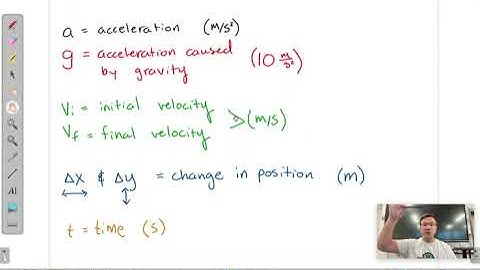 a = acceleration (m/s²)
g = acceleration caused by gravity (10 m/s²)
Vi = initial velocity
Vf = final velocity > (m/s)
Δx & Δy = change in position (m)
t = time (s)